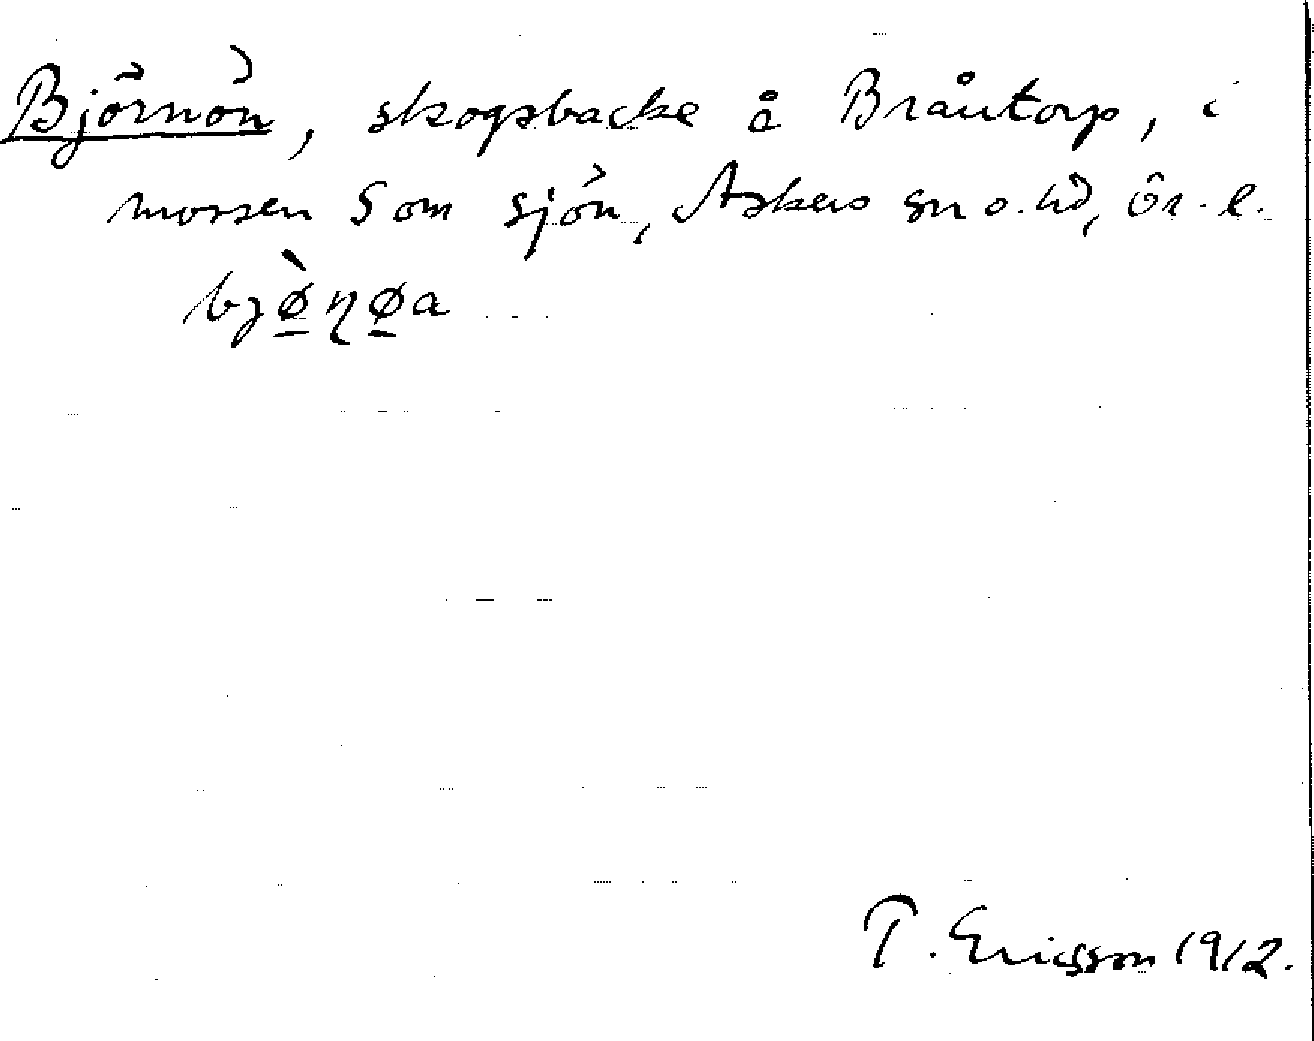 Björnön, skogsbacke å Bråtorp, i
mossen S om sjön, Askers sn o. hd, Ör. l.
bjø̱̀ɳø̱a
T. Ericsson 1912.